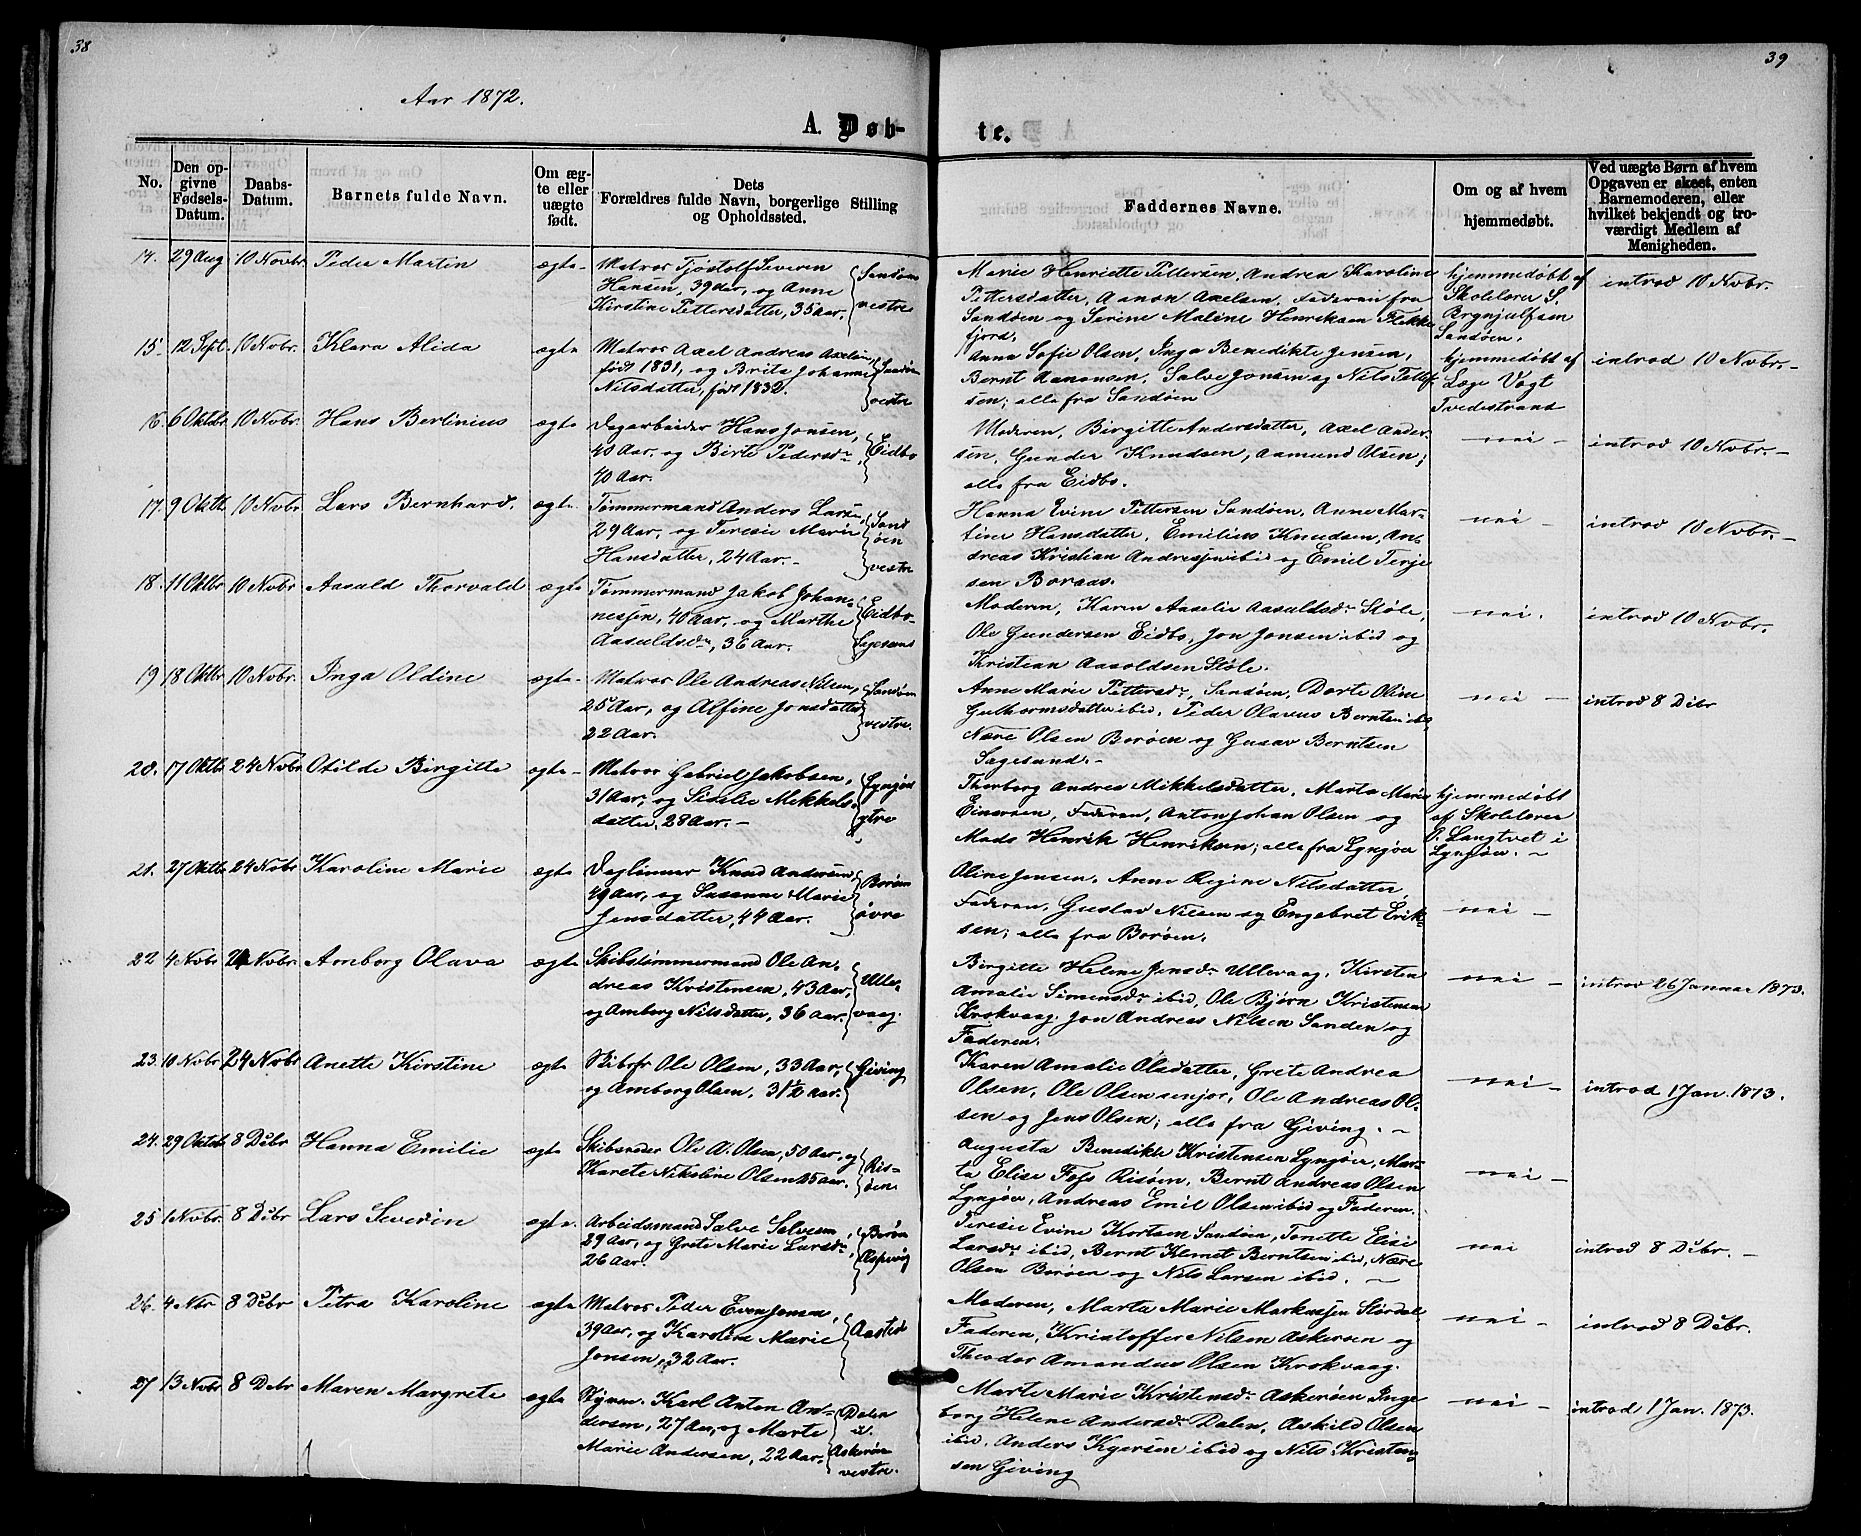 38
39
Aar 1872.
A. Døb-
te.
No.
Den op-
givne
Fødsels-
Datum.
Daabs-
Datum.
Barnets fulde Navn.
Om æg-
te eller
uægte
født.
Dets
Forældres fulde Navn, borgerlige Stilling
og Opholdssted.
Faddernes Navne.
Om og af hvem
hjemmedøbt.
Ved uægte Børn af hvem
Opgaven er skeet, enten
Barnemoderen, eller
hvilket bekjendt og tro-
værdigt Medlem af
Menigheden.
14. 29 Aug 10 Novbr Peder Martin ægte
Matros Tjøstolf Severin
Hansen, 39 Aar, og Anne
Kirstine Pettersdatter, 35 Aar.
Sandøen
vestre
Marie Henriette Pettersen, Andrea Karoline
Pettersdatter, Aanon Axelsen, Faderen fra
Sandøen og Serine Maline Henriksen Flekke
fjord.
hjemmedøbt af
Skolelærer S.
Brynjulfsen
Sandøen.
introd 10 Novbr.
15. 12 Sept. 10 Novbr. Klara Alida ægte
Matros Axel Andreas Axelsen
født 1831, og Brite Johanne
Nilsdatter, født 1832.
Sandøen
vestre
Anna Sofie Olsen, Inga Benedikte Jensen,
Bernt Aanonsen, Salve Jonsen og Nils Petter
sen; alle fra Sandøen
hjemmedøbt af
Læge Vogt
Tvedestrand
introd 10 Novbr. -
16. 6 Oktbr 10 Novbr. Hans Berlinius ægte
Dagarbeider Hans Jonsen,
40 Aar, og Birte Pedersdr
40 Aar.
Eidbo
Moderen, Birgitte Andersdatter, Axel Ander-
sen, Gunder Knudsen, Aamund Olsen;
alle fra Eidbo.
nei -
introd 10 Novbr. -
17. 9 Oktb. 10 Novbr Lars Bernhard. ægte
Tømmermand Anders Larsen,
29 Aar, og Teresie Marie
Hansdatter, 24 Aar. -
Sand
øen
vestre
Hanna Evine Pettersen Sandøen, Anne Mar-
tine Hansdatter, Emilius Knudsen, An-
dreas Kristian Andresen ibid og Emil Terje
sen Boraas.
nei -
introd 10 Novbr. -
18. 11 Oktbr 10 Novbr Aasuld Thorvald ægte
Tømmermand Jakob Johan-
nessen, 40 Aar, og Marthe
Aasuldsdr, 36 Aar.
Eidbo-
Sagesund
Moderen, Karen Aaselie Aasuldsdr Støle,
Ole Gundersen Eidbo, Jon Jonsen ibid og
Kristian Aasoldsen Støle.
nei.
introd 10 Novbr.
19 18 Oktbr 10 Novbr. Inga Oldine ægte
Matros Ole Andreas Nilsen,
25 Aar, og Alfine Jonsdatter
22 Aar.
Sandøen
vestre.
Anne Marie Pettersdr, Sandøen, Dorte Oline
Guthormsdatter ibid, Peder Olavus Berntsen ibd,
Nære Olsen Borøen og Gusav Berntsen
Sagesund. -
nei -
introd 8 Debr
20. 17 Oktbr 24 Novbr Otilde Birgitte ægte
Matros Gabriel Jakobsen,
31 Aar, og Sirelie Mikkels-
datter, 28 Aar. -
Lyngør
ytre
Thorborg Andrea Mikkelsdatter, Marta Marie
Einersen, Faderen, Anton Johan Olsen og
Mads Henrik Henriksen; alle fra Lyngøer
hjemmedøbt
af Skolelærer
O. Langtvet i
Lyngøer. -
21. 27 Oktbr 24 Novbr Karoline Marie ægte
Daglønner Knud Andersen
49 Aar, og Susanne Marie
Jensdatter, 44 Aar.
Borøen
øvre
Oline Jensen, Anne Regine Nilsdatter,
Faderen, Gustav Nilsen og Engebret Erik-
sen; alle fra Borøen.
nei -
22 4 Novbr 24 Novbr. Amborg Olava ægte
Skibstømmermand Ole An-
dreas Kristensen, 43 Aar,
og Amberg Nilsdatter, 36 Aar.
Ulle-
vaag.
Birgitte Helene Jensdr Ullevaag, Kirsten
Amalie Simensdr ibid, Ole Bjørn Kristensen
Krokvaag, Jon Andreas Nilsen Sanden og
Faderen.
nei -
introd 26 Januar 1873.
23. 10 Novbr 24 Novbr Anette Kirstine ægte
Skibsfr Ole Olsen, 33 Aar,
og Amborg Olsen, 31½ aar.
Giving
Karen Amalie Olsdatter, Grete Andrea
Olsen, Ole Olsen senjor, Ole Andreas Ol-
sen og Jens Olsen; alle fra Giving. -
nei -
introd 1 Jan. 1873.
24. 29 Oktbr 8 Debr Hanna Emilie ægte
Skibsreder Ole A. Olsen, 50 Aar, og
Karete Nikoline Olsen 45 aar.
Ris-
øen
Augusta Benedikte Kristensen Lyngøer, Mar-
ta Elise Foss Risøen, Bernt Andreas Olsen
Lyngøer, Andreas Emil Olsen ibid og Faderen.
nei -
25 1 Novbr. 8 Debr Lars Severin ægte
Arbeidsmand Salve Salvesen,
29 Aar, og Grete Marie Larsdr,
26 Aar.
Borøen
Aspevig
Teresie Evine Kortsen Sandøen, Tonette Elise
Larsdr ibid, Bernt Klemet Berntsen ibid, Nære
Olsen Borøen og Nils Larsen ibid. -
nei
introd 8 Debr. -
26. 4 Nbr 8 Debr Petra Karoline ægte
Matros Peder Even Jensen,
39 Aar, og Karoline Marie
Jonsen, 32 Aar.
Aasted
Moderen, Marta Marie Markussen Størdal
Faderen, Kristoffer Nilsen Askerøen og
Theodor Amandus Olsen Krokvaag.
nei -
introd 8 Debr.
27 13 Novbr 8 Debr Maren Margrete ægte
Styrm. Karl Anton An-
dersen, 27 Aar, og Marte
Marie Andersen, 22 Aar.
Dalen
i
Askerøen
vestre.
Marte Marie Kristensdr Askerøen Inge
borg Helene Andersdr Dalen, Askild Olsen
ibid, Anders Kjærsen ibid og Nils Kristen-
sen Giving
nei -
introd 1 Jan. 1873.